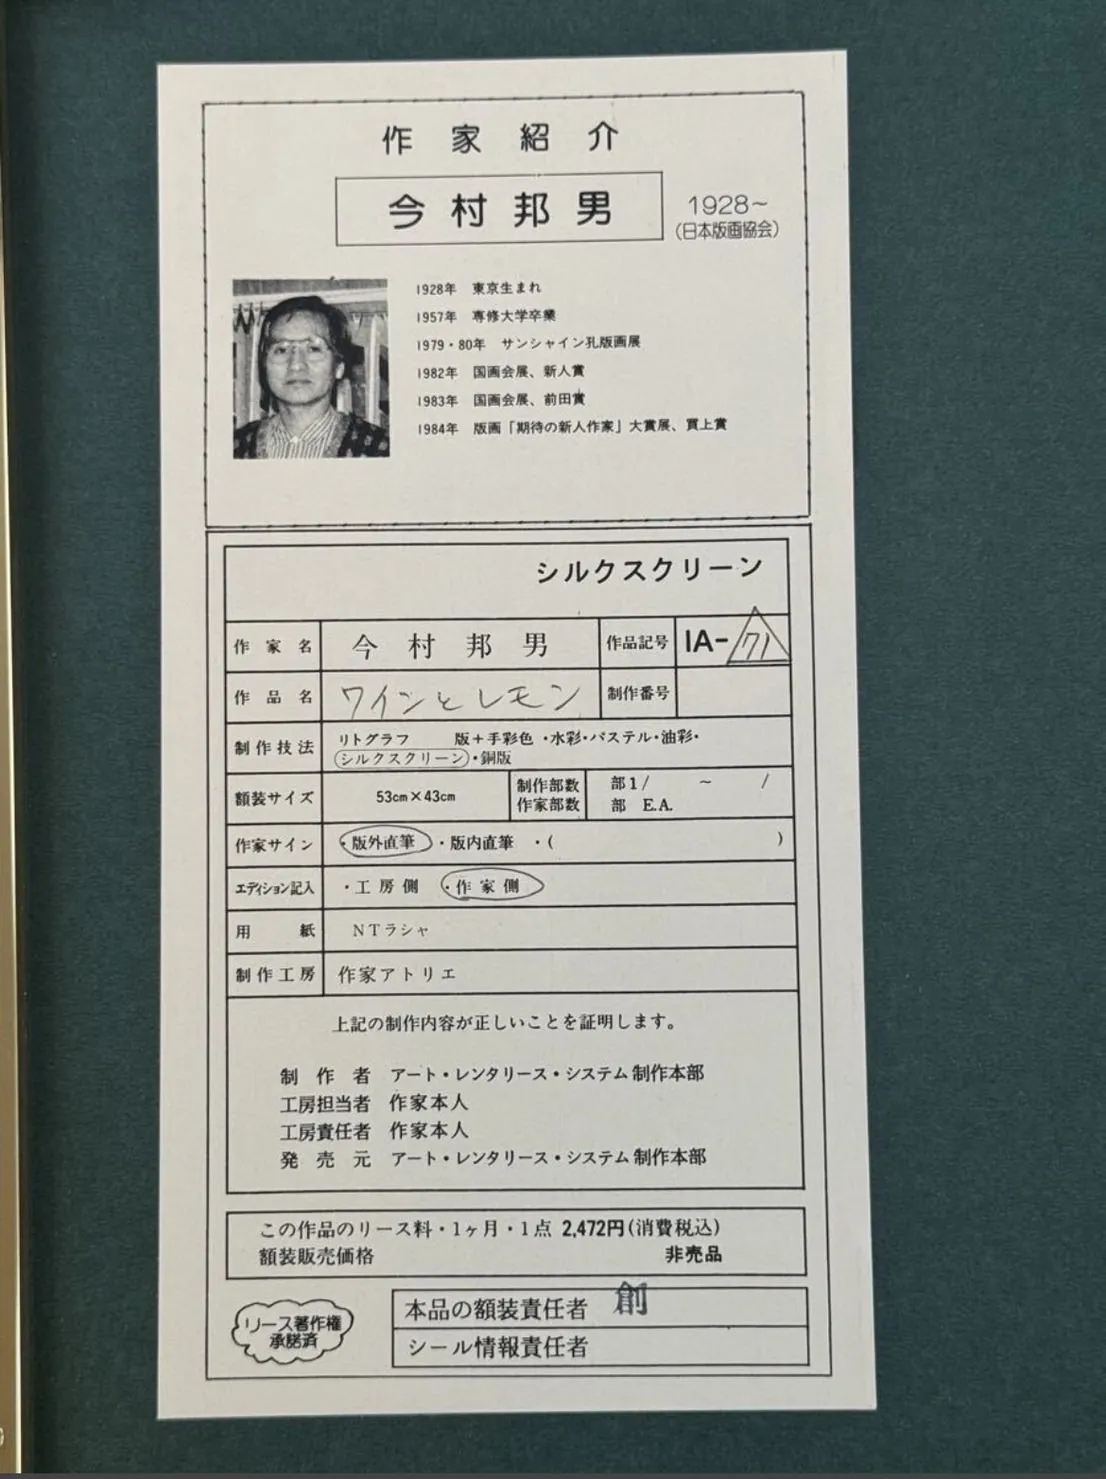 作家紹介
今村邦男
1928～
(日本版画協会)
1928年 東京生まれ
1957年 専修大学卒業
1979・80年 サンシャイン孔版画展
1982年 国画会展、新人賞
1983年 国画会展、前田賞
1984年 版画「期待の新人作家」大賞展、買上賞
シルクスクリーン
作家名 今村邦男 作品記号 IA-71
作品名 ワインとレモン 制作番号
制作技法 リトグラフ 版＋手彩色・水彩・パステル・油彩・
シルクスクリーン・銅版
額装サイズ 53cm×43cm 制作部数 部1/ ～ /
作家部数 部 E.A.
作家サイン ・版外直筆 ・版内直筆 ・( )
エディション記入 ・工房側 ・作家側
用紙 NTラシャ
制作工房 作家アトリエ
上記の制作内容が正しいことを証明します。
制作者 アート・レンタリース・システム制作本部
工房担当者 作家本人
工房責任者 作家本人
発売元 アート・レンタリース・システム制作本部
この作品のリース料・1ヶ月・1点 2,472円(消費税込)
額装販売価格 非売品
リース著作権
承諾済
本品の額装責任者 創
シール情報責任者